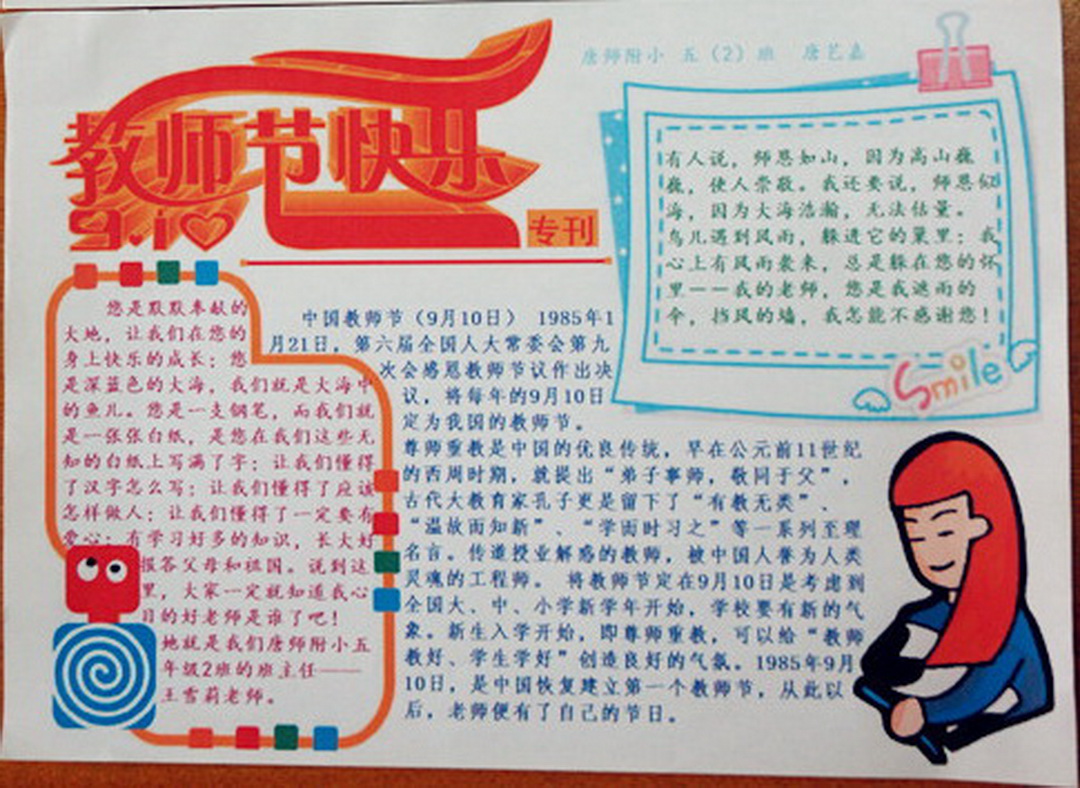 唐师附小 五（2）班 唐艺嘉
教师节快乐
9.10
专刊
有人说，师恩如山，因为高山巍
巍，使人崇敬。我还要说，师恩似
海，因为大海浩瀚，无法估量。
鸟儿遇到风雨，躲进它的巢里；我
心上有风雨袭来，总是躲在您的怀
里——我的老师，您是我遮雨的
伞，挡风的墙，我怎能不感谢您！
Smile
您是默默奉献的
大地，让我们在您的
身上快乐的成长；您
是深蓝色的大海，我们就是大海中
的鱼儿。您是一支钢笔，而我们就
是一张张白纸，是您在我们这些无
知的白纸上写满了字；让我们懂得
了汉字怎么写；让我们懂得了应该
怎样做人；让我们懂得了一定要有
爱心；有学习好多的知识，长大好
报答父母和祖国。说到这
里，大家一定就知道我心
目的好老师是谁了吧！
她就是我们唐师附小五
年级2班的班主任——
王雪莉老师。
中国教师节（9月10日） 1985年1
月21日，第六届全国人大常委会第九
次会感恩教师节议作出决
议，将每年的9月10日
定为我国的教师节。
尊师重教是中国的优良传统，早在公元前11世纪
的西周时期，就提出“弟子事师，敬同于父”，
古代大教育家孔子更是留下了“有教无类”、
“温故而知新”、“学而时习之”等一系列至理
名言。传道授业解惑的教师，被中国人誉为人类
灵魂的工程师。 将教师节定在9月10日是考虑到
全国大、中、小学新学年开始，学校要有新的气
象。新生入学开始，即尊师重教，可以给“教师
教好、学生学好”创造良好的气氛。1985年9月
10日，是中国恢复建立第一个教师节，从此以
后，老师便有了自己的节日。